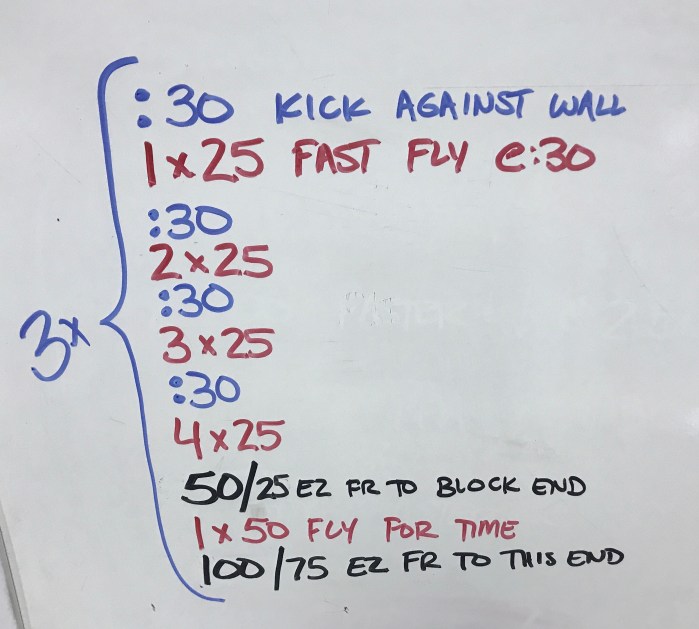 3x
:30 KICK AGAINST WALL
1x25 FAST FLY @:30
:30
2x25
:30
3x25
:30
4x25
50/25 EZ FR TO BLOCK END
1x50 FLY FOR TIME
100/75 EZ FR TO THIS END